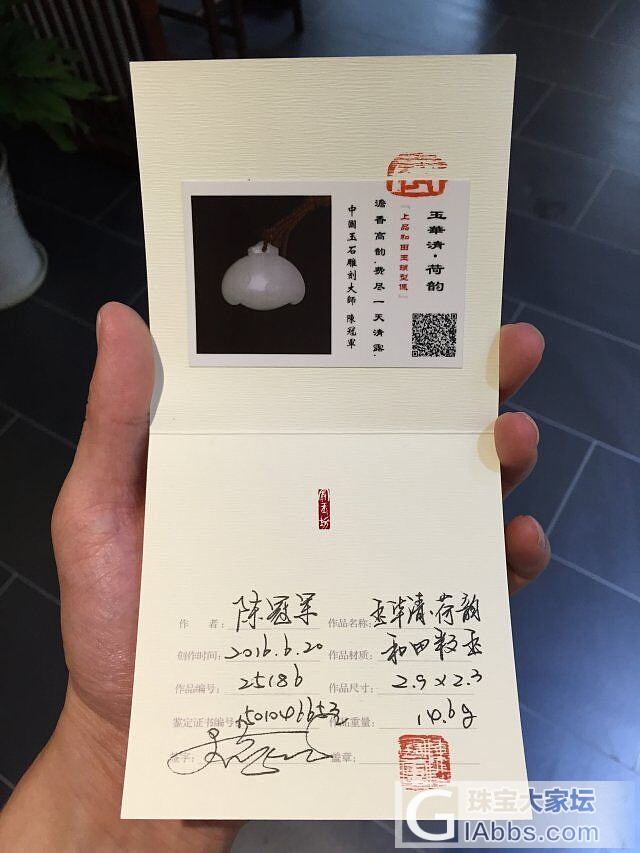 玉華清·荷韵
『上品和田玉
澹香高韵·费尽一天清露·
中國玉石雕刻大師 陳冠軍
作　者：陈冠军
作品名称：玉华清·荷韵
创作时间：2016.6.20
作品材质：
作品编号：25186
作品尺寸：2.9×2.3
鉴定证书编号：
作品重量：14.6g
签字：
盖章：
珠宝大家坛
GIAbbs.com